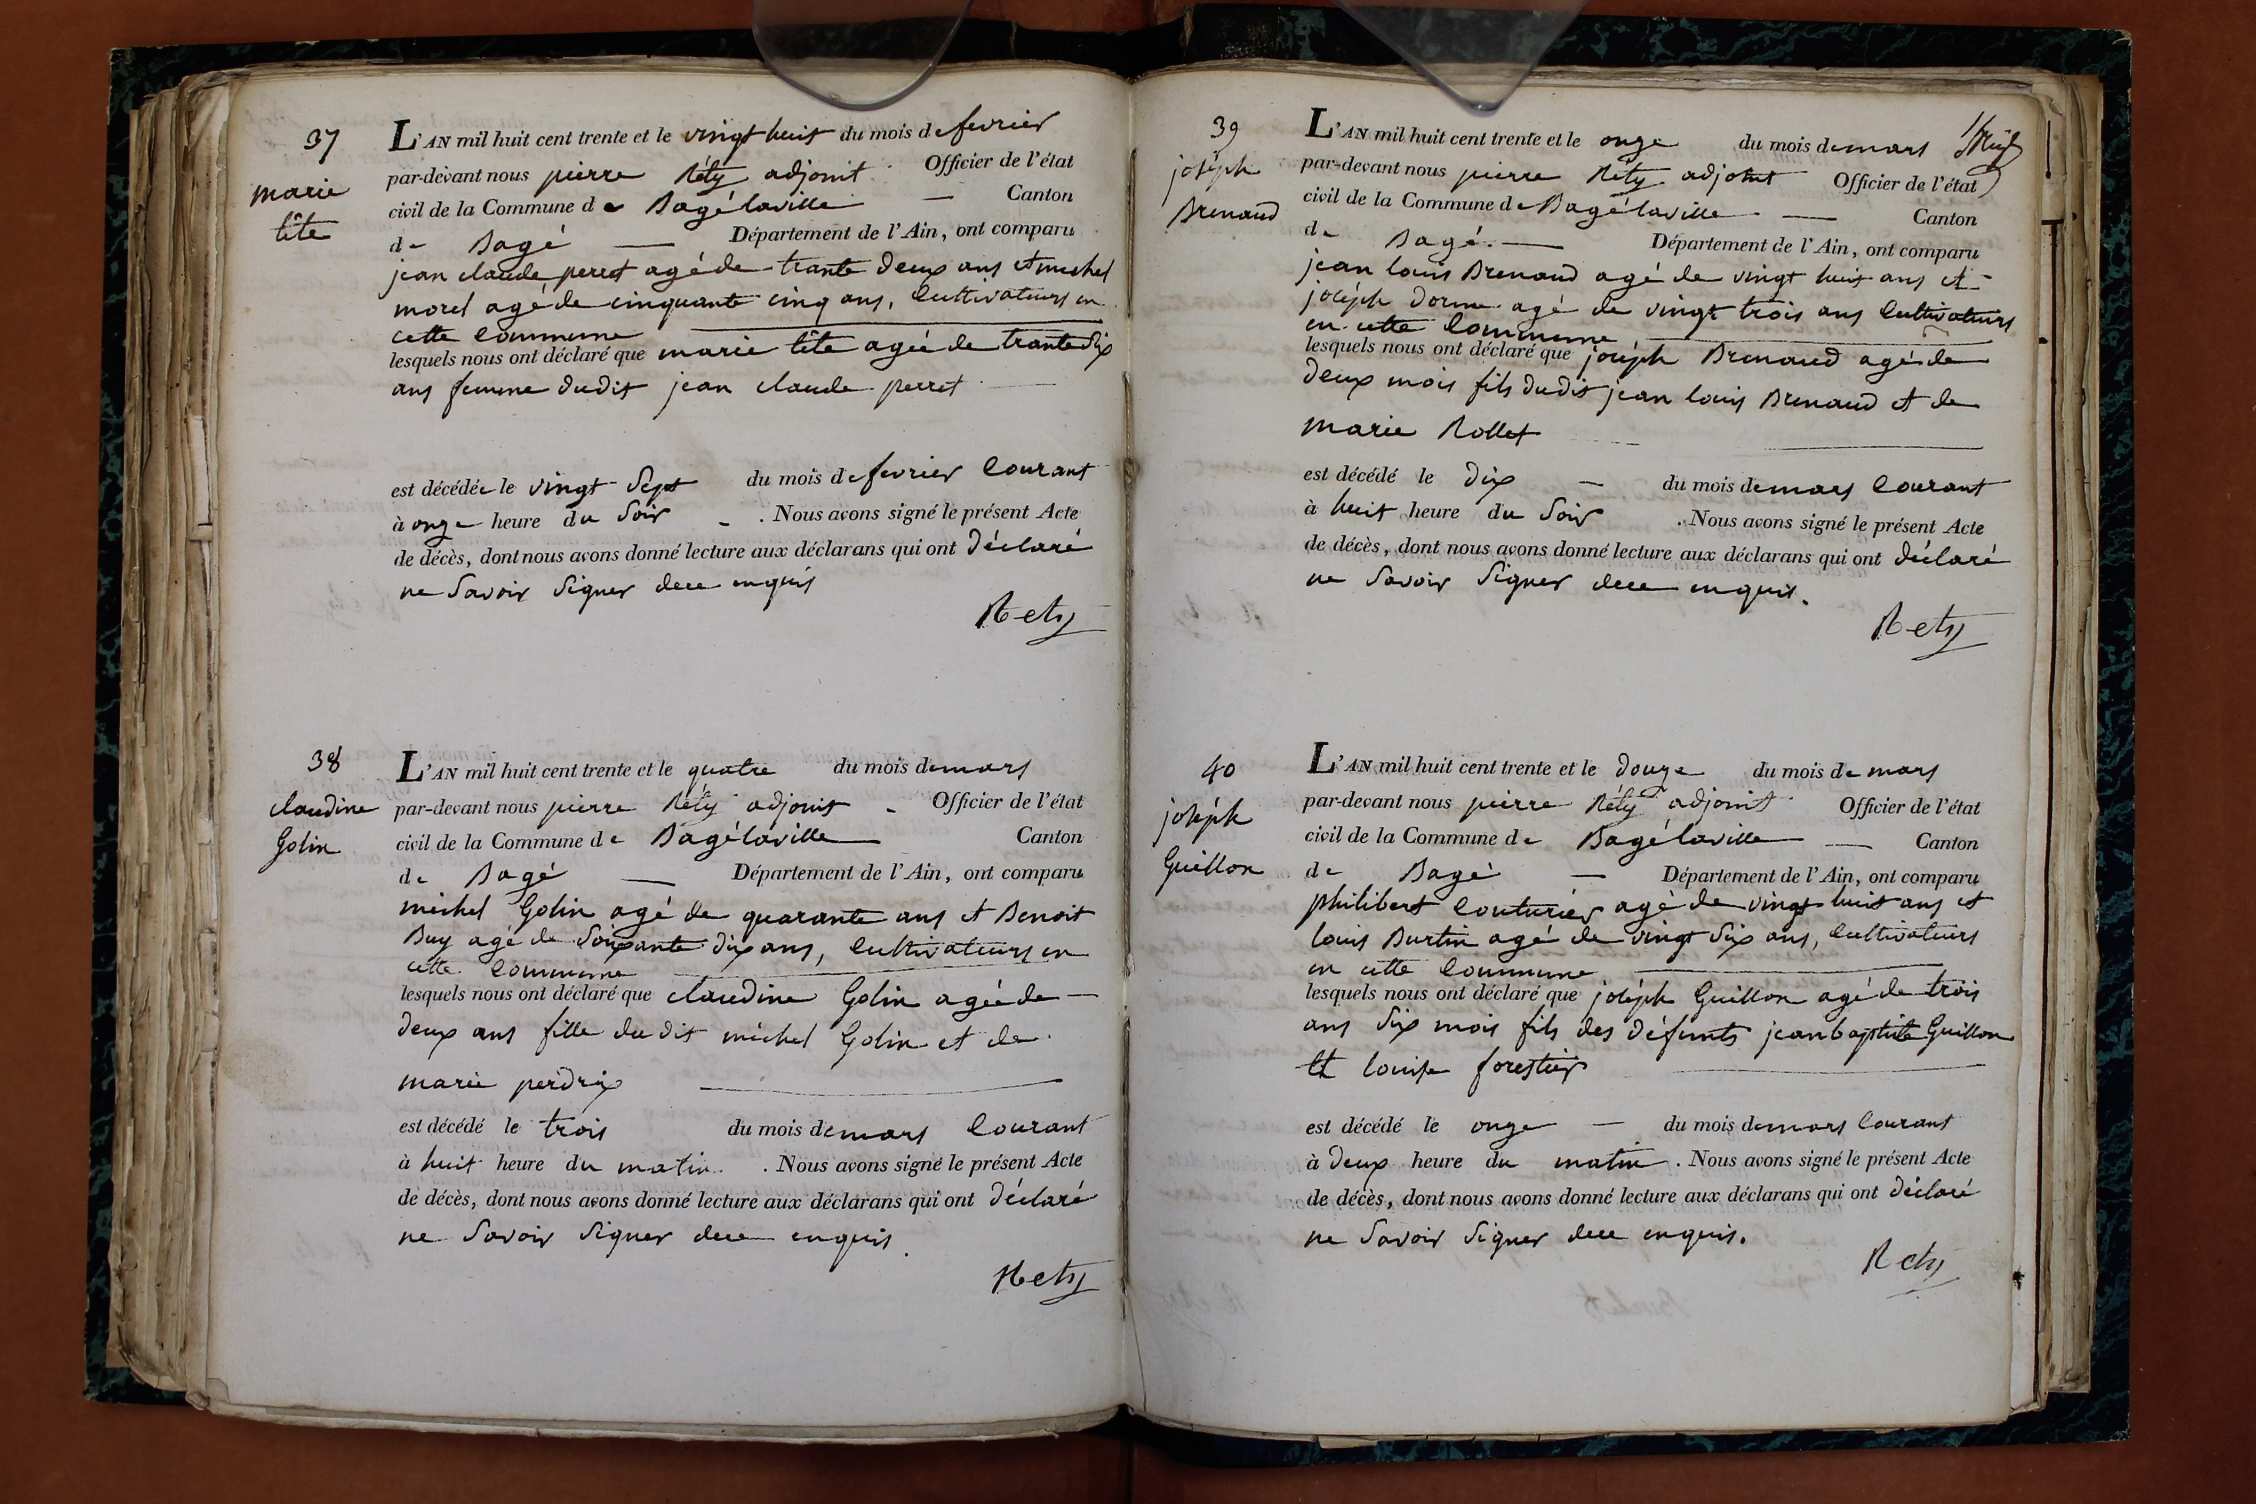 37
marie
tête
L'AN mil huit cent trente et le vingt huit du mois de fevrier
par-devant nous pierre Réty adjoint Officier de l'état
civil de la Commune de Bagélaville — Canton
de Bagé — Département de l'Ain, ont comparu
jean claude perret agé de trante deux ans et michel
morel agé de cinquante cinq ans, Cultivateurs en
cette Commune
lesquels nous ont déclaré que marie tête agée de trante Six
ans femme dudit jean claude perret
est décédée le vingt Sept du mois de fevrier Courant
à onze heure du Soir . Nous avons signé le présent Acte
de décès, dont nous avons donné lecture aux déclarans qui ont déclaré
ne Savoir Signer dece enquis
Rety
38
claudine
Golin
L'AN mil huit cent trente et le quatre du mois de mars
par-devant nous pierre Réty adjoint Officier de l'état
civil de la Commune de Bagélaville Canton
de Bagé — Département de l'Ain, ont comparu
michel Golin agé de quarante ans et Benoit
Buy agé de Soixante dix ans, Cultivateurs en
cette Commune
lesquels nous ont déclaré que claudine Golin agée de
deux ans fille du dit michel Golin et de
marie perdrix
est décédé le trois du mois de mars Courant
à huit heure du matin . Nous avons signé le présent Acte
de décès, dont nous avons donné lecture aux déclarans qui ont déclaré
ne Savoir Signer dece enquis
Rety
39
joséph
Brenaud
L'AN mil huit cent trente et le onze du mois de mars
par-devant nous pierre Réty adjoint Officier de l'état
civil de la Commune de Bagélaville — Canton
de Bagé — Département de l'Ain, ont comparu
jean louis Brenaud agé de vingt huit ans et
joséph dorme agé de vingt trois ans Cultivateurs
en cette Commune
lesquels nous ont déclaré que joséph Brenaud agé de
deux mois fils dudit jean louis Brenaud et de
marie Rollet
est décédé le dix — du mois de mars Courant
à huit heure du Soir . Nous avons signé le présent Acte
de décès, dont nous avons donné lecture aux déclarans qui ont déclaré
ne Savoir Signer dece enquis.
Rety
40
joséph
Guillon
L'AN mil huit cent trente et le douze du mois de mars
par-devant nous pierre Réty adjoint Officier de l'état
civil de la Commune de Bagélaville — Canton
de Bagé — Département de l'Ain, ont comparu
philibert Couturier agé de vingt huit ans et
louis Burtin agé de vingt Six ans, Cultivateurs
en cette Commune
lesquels nous ont déclaré que joséph Guillon agé de trois
ans Six mois fils des défunts jean baptiste Guillon
et louise forestier
est décédé le onze — du mois de mars Courant
à deux heure du matin . Nous avons signé le présent Acte
de décès, dont nous avons donné lecture aux déclarans qui ont déclaré
ne Savoir Signer dece enquis.
Rety